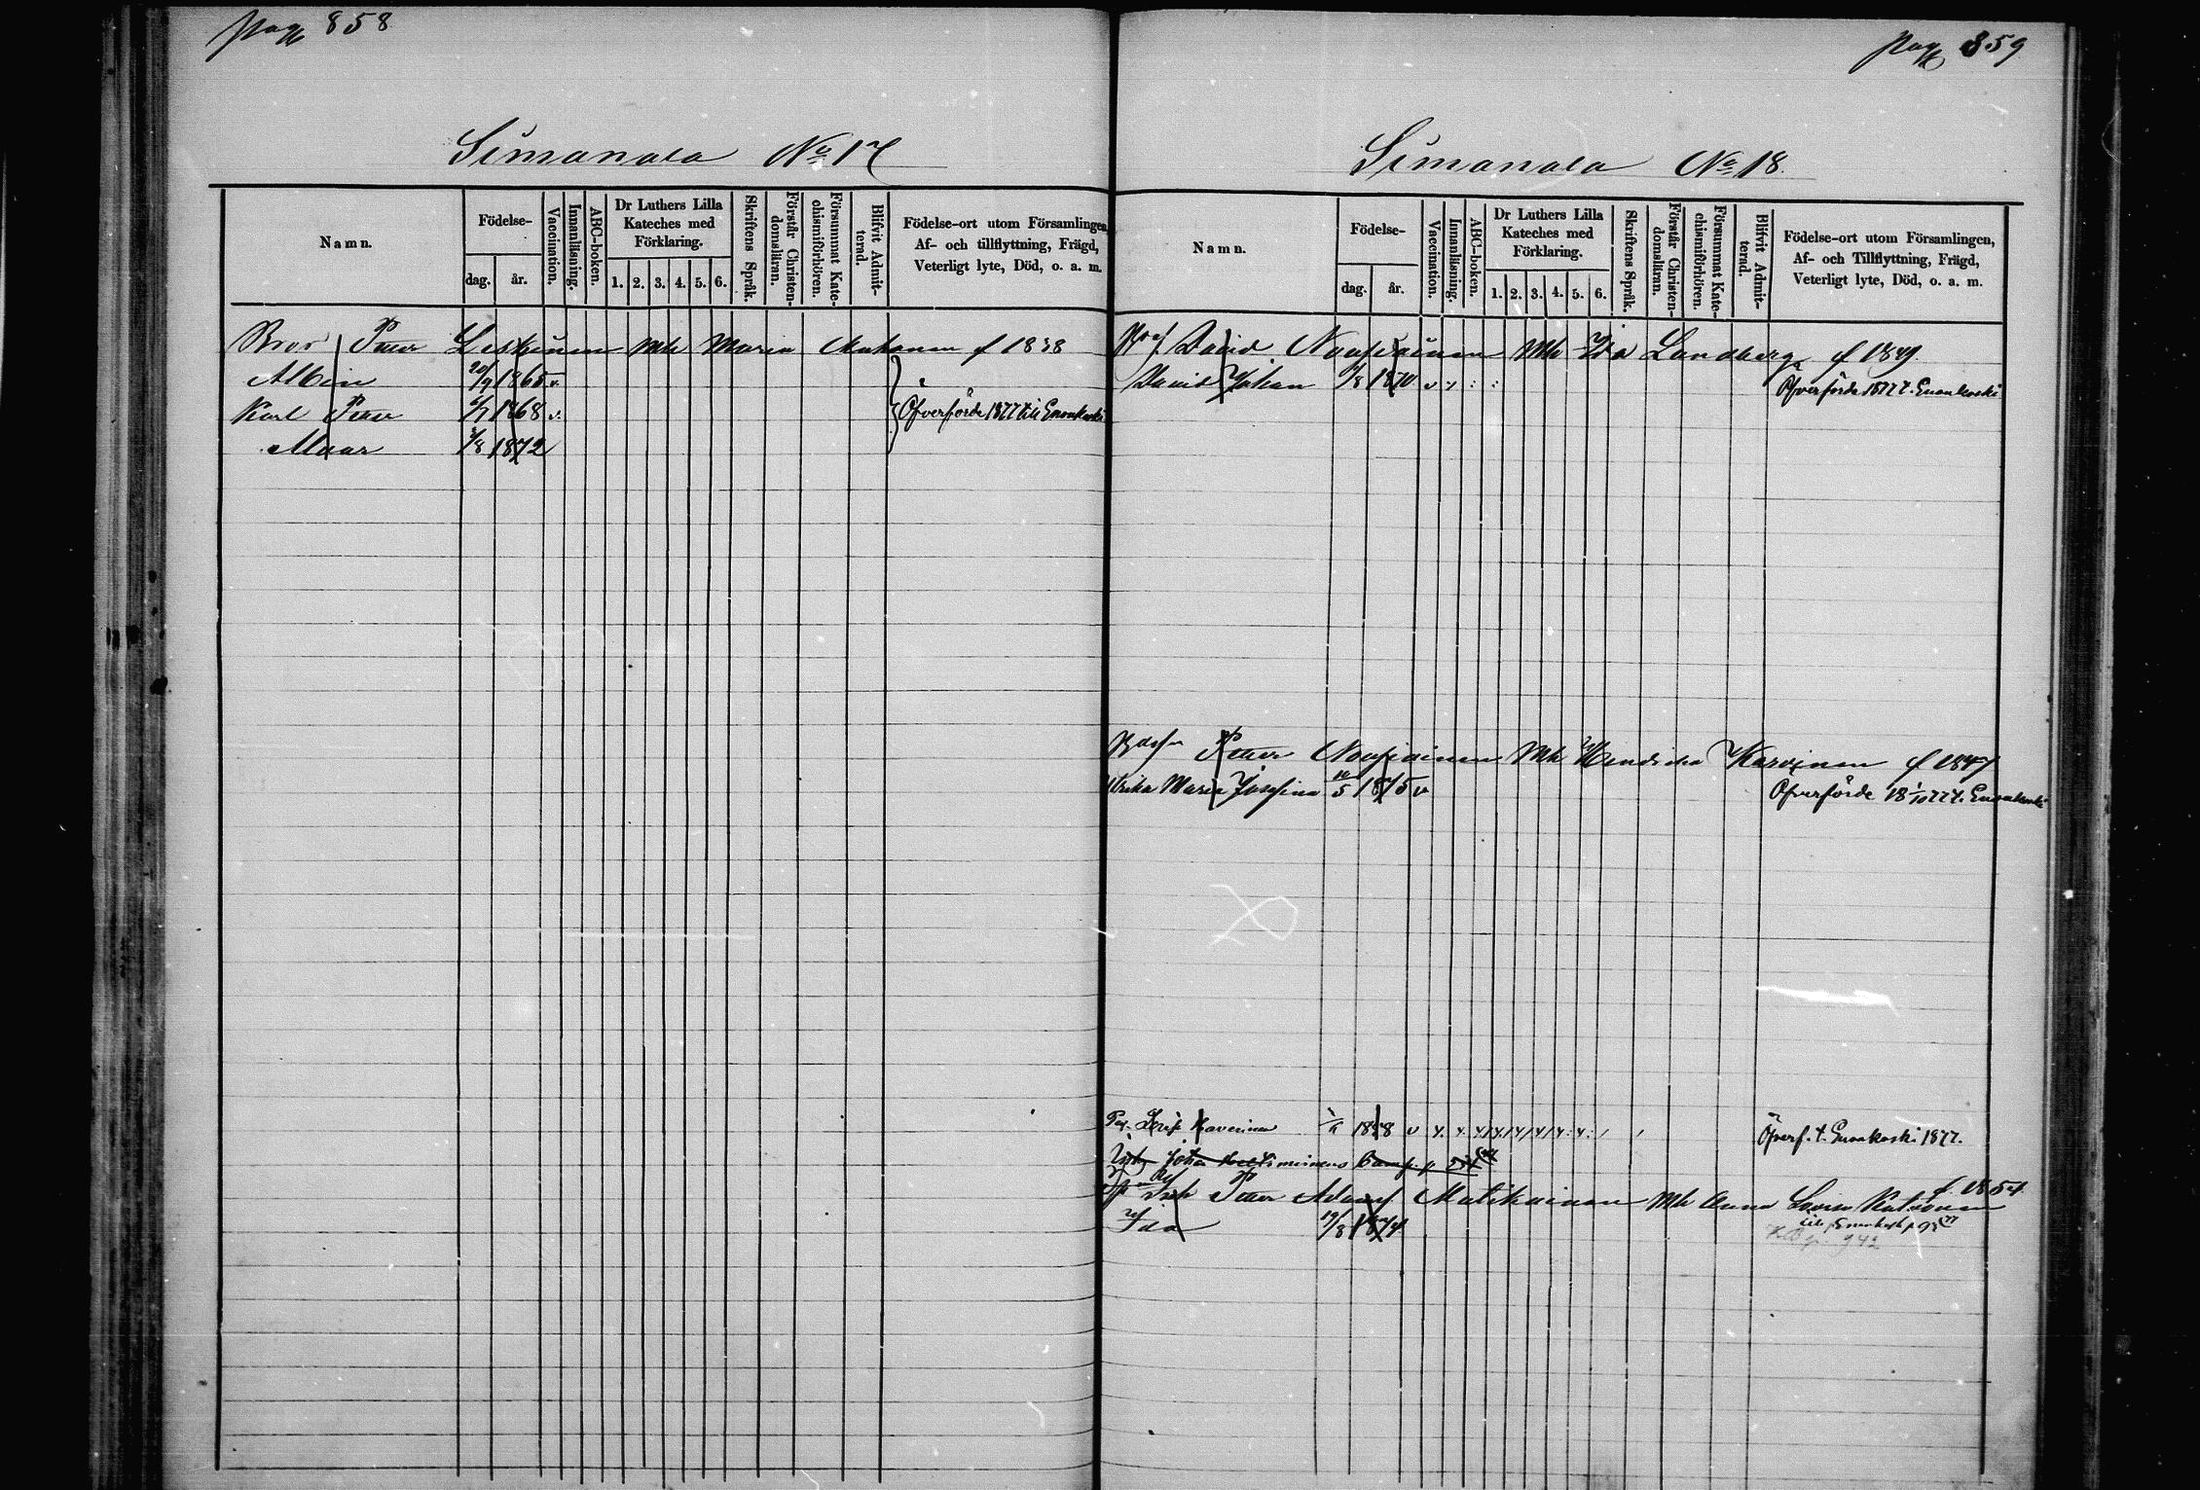 pag 858
Simanala No 17
Namn.
Födelse-
dag.
år.
Vaccination.
Innanläsning.
ABC-boken.
Dr Luthers Lilla
Kateches med
Förklaring.
1. 2. 3. 4. 5. 6.
Skriftens Språk.
Förstår Christen-
domsläran.
Försummat Kate-
chismiförhören.
Blifvit Admit-
terad.
Födelse-ort utom Församlingen,
Af- och tillflyttning, Frägd,
Veterligt lyte, Död, o. a. m.
Bror Petter Leskinen Mh Maria f 1838
Albin 20/9 1865 v.
Karl Petter 1868 v.
Öfverförde 1877 till Enonkoski
1872
pag 859
Simanala No 18.
Namn.
Födelse-
dag.
år.
Vaccination.
Innanläsning.
ABC-boken.
Dr Luthers Lilla
Kateches med
Förklaring.
1. 2. 3. 4. 5. 6.
Skriftens Språk.
Förstår Christen-
domsläran.
Försummat Kate-
chismiförhören.
Blifvit Admit-
terad.
Födelse-ort utom Församlingen,
Af- och Tillflyttning, Frägd,
Veterligt lyte, Död, o. a. m.
David Nousiainen Mh Ida Lundberg f 1849.
David Johan 1870 v
Öfverförde 1877 t. Enonkoski
Petter Nousiainen Mh Hendrika Karvinen f 1847
Ulrika Maria Josefina 5 1875 v
Öfverförde 18 1/10 77 t. Enonkoski
Kaverinen v
Öfverf. t. Enonkoski 1877.
Petter Adamsf Matikainen Mh Anna Lovisa f. 1854
Ida 19/8 1874
942